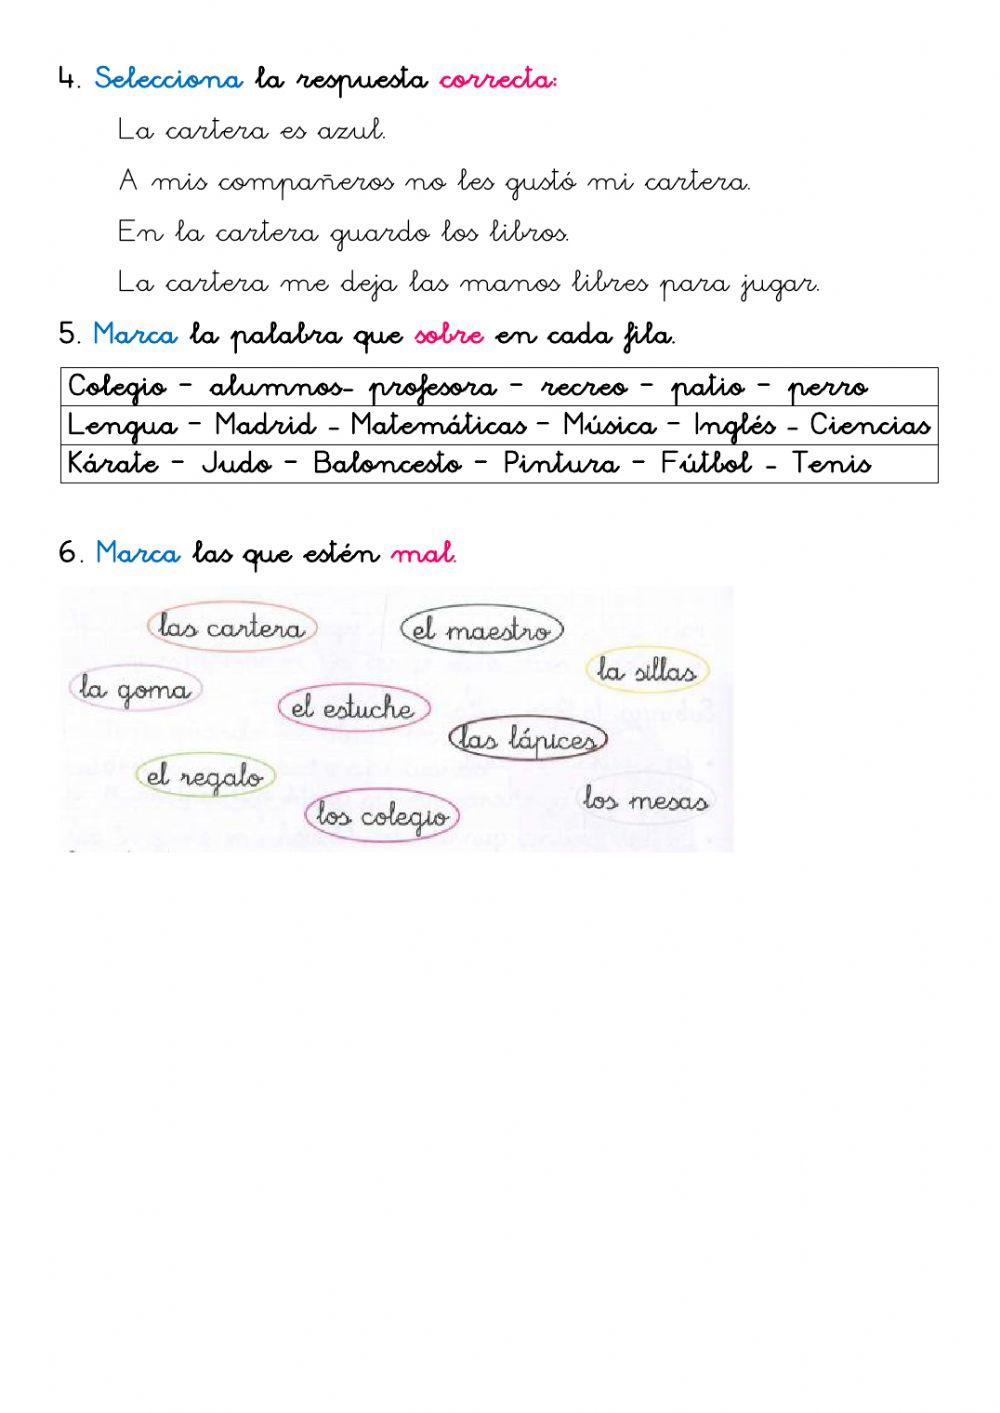 4. Selecciona la respuesta correcta:
La cartera es azul.
A mis compañeros no les gustó mi cartera.
En la cartera guardo los libros.
La cartera me deja las manos libres para jugar.
5. Marca la palabra que sobre en cada fila.
Colegio - alumnos- profesora - recreo - patio - perro
Lengua - Madrid - Matemáticas - Música - Inglés - Ciencias
Kárate - Judo - Baloncesto - Pintura - Fútbol - Tenis
6. Marca las que estén mal.
las cartera
el maestro
la sillas
la goma
el estuche
las lápices
el regalo
los mesas
los colegio